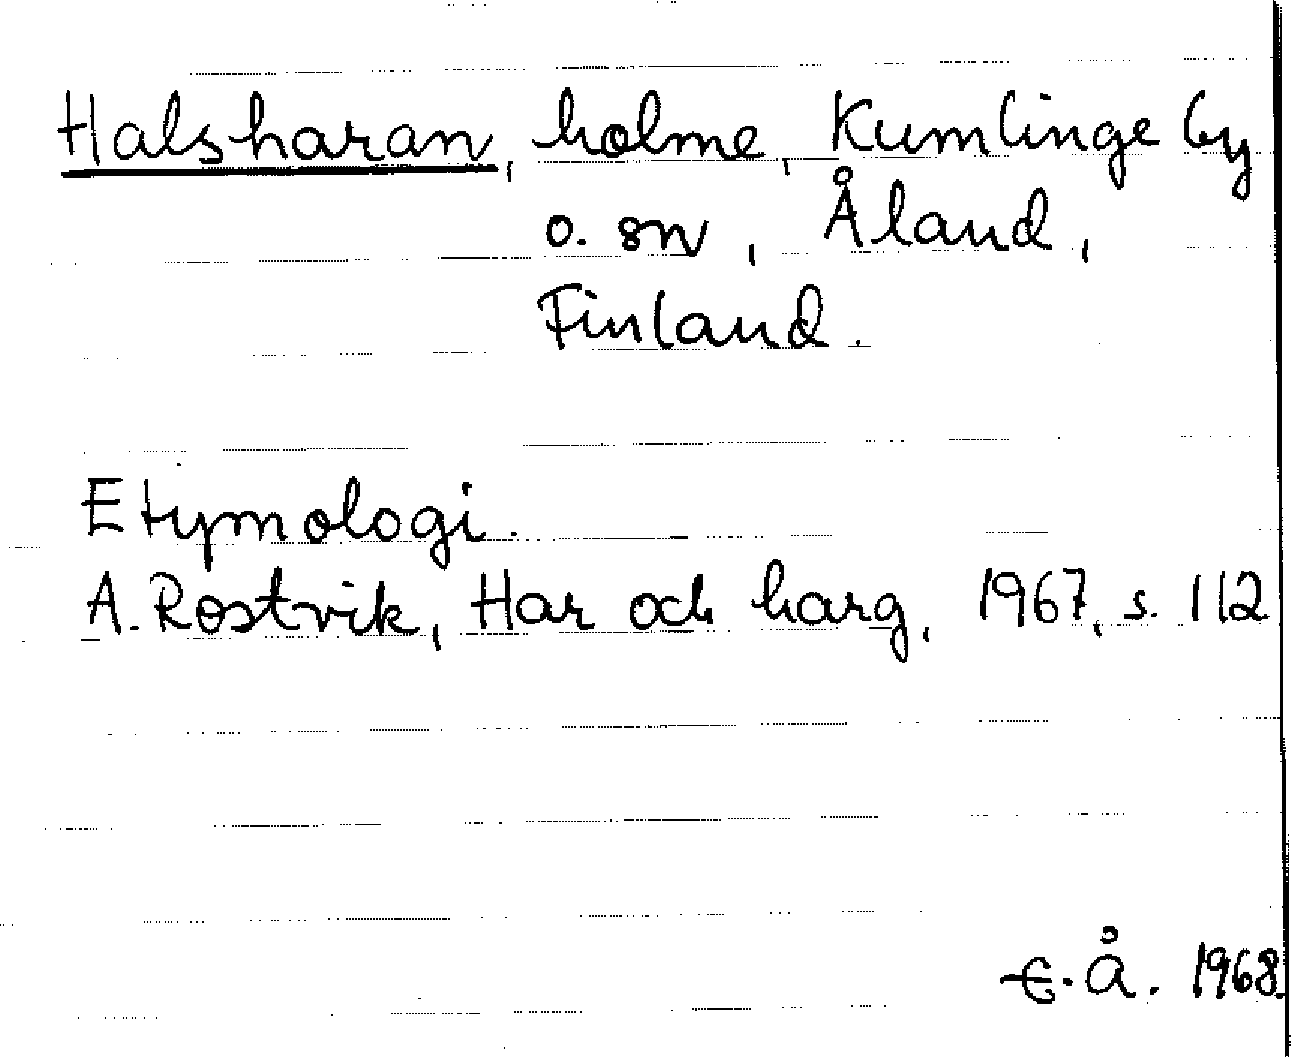 Halsharan, holme, Kumlinge by
o. sn, Åland,
Finland.
Etymologi.
A. Rostvik, Har och harg, 1967, s. 112
E.Å. 1968.